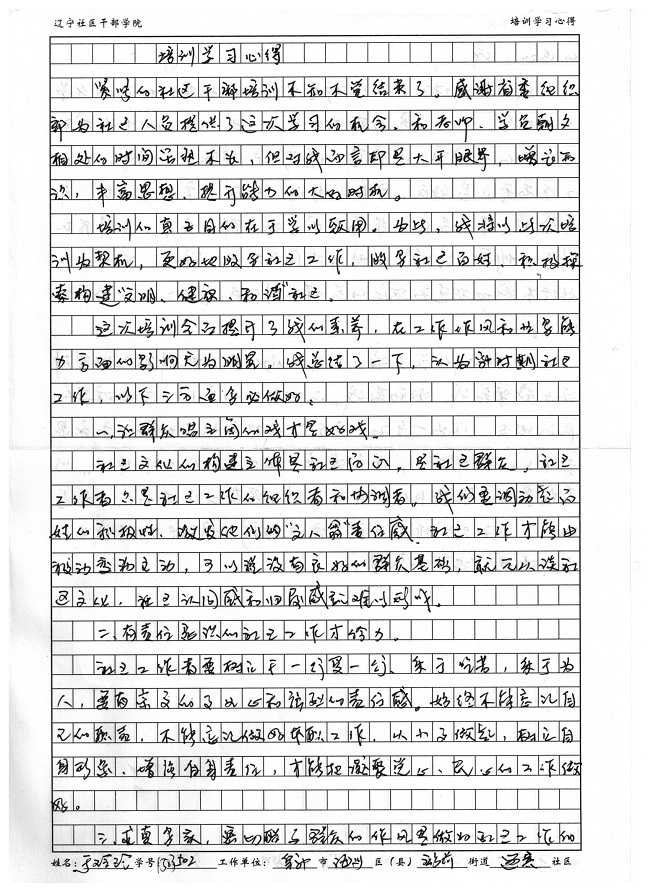 辽宁社区干部学院 培训学习心得
培训学习心得
紧张的社区干部培训不知不觉结束了。感谢省委组织
部为社区人员提供了这次学习的机会。和老师、学员朝夕
相处的时间虽短不长,但对我而言却是大开眼界,增长知
识,丰富思想、提升能力的大好时机。
培训的真正目的在于学以致用。为此,我将以此次培
训为契机,更好地服务社区工作,服务社区百姓,积极探
索构建"文明、健康、和谐"社区。
这次培训全面提升了我的素养,在工作作风和业务能
力方面的影响尤为明显。我总结了一下,认为新时期社区
工作,以下三方面务必做好。
一、让群众唱主角的戏才是好戏。
社区文化的构建主体是社区居民,是社区群众,社区
工作者只是社区工作的组织者和协调者。我们要调动老百
姓的积极性,激发他们的"主人翁"责任感,社区工作才能由
被动变为主动,可以说没有良好的群众基础,就无从谈社
区文化,社区认同感和归属感就难以形成。
二、有责任意识的社区工作才给力。
社区工作者要树立干一行爱一行、乐于吃苦,乐于为
人,要有崇文的事业心和强烈的责任感。始终不能忘记自
己的职责,不能忘记做好本职工作,从小事做起,树立自
身形象、增强自身责任,才能把凝聚党心、民心的工作做
好。
三、求真务实,密切联系群众的作风是做好社区工作的
姓名: 学号 工作单位: 市 区(县) 街道 社区